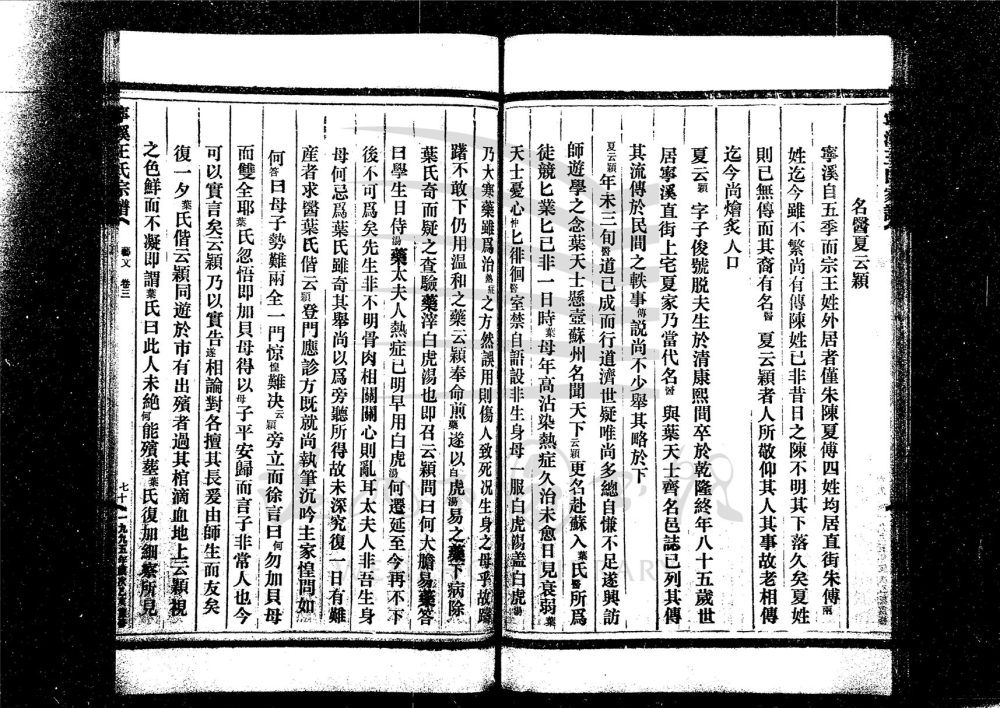 名醫夏云穎
寧溪自五季而宗王姓外居者僅朱陳夏傅四姓均居直街朱傅兩
姓迄今雖不繁尚有傳陳姓已非昔日之陳不明其下落久矣夏姓
則已無傳而其裔有名醫夏云穎者人所敬仰其人其事故老相傳
迄今尚燴炙人口
夏云穎字子俊號脱夫生於清康熙間卒於乾隆終年八十五歲世
居寧溪直街上宅夏家乃當代名醫與葉天士齊名邑誌已列其傳
其流傳於民間之軼事傳說尚不少舉其略於下
夏云穎年未三旬醫道已成而行道濟世疑唯尚多總自慊不足遂興訪
師遊學之念葉天士懸壺蘇州名聞天下云穎更名赴蘇入葉氏醫所爲
徒競匕業匕已非一日時葉母年高沾染熱症久治未愈日見衰弱葉
天士憂心忡匕徘徊醫室禁自語設非生身母一服白虎湯盖白虎湯
乃大寒藥雖爲治熱症之方然誤用則傷人致死况生身之母乎故躊
躇不敢下仍用温和之藥云穎奉命煎藥遂以白虎湯易之藥下病除
葉氏奇而疑之查驗藥滓白虎湯也即召云穎問曰何大膽易藥答
曰學生日侍湯藥太夫人熱症已明早用白虎湯何遷延至今再不下
後不可爲矣先生非不明骨肉相關關心則亂耳太夫人非吾生身
母何忌爲葉氏雖奇其舉尚以爲旁聽所得故未深究復一日有難
産者求醫葉氏偕云穎登門應診方既就尚執筆沉吟主家惶問如
何答曰母子勢難兩全一門惊惶難决云穎旁立而徐言曰何勿加貝母
而雙全耶葉氏忽悟即加貝母得以母子平安歸而言子非常人也今
可以實言矣云穎乃以實告遂相論對各擅其長爰由師生而友矣
復一夕葉氏偕云穎同遊於市有出殯者過其棺滴血地上云穎視
之色鮮而不凝即謂葉氏曰此人未絶何能殯塟葉氏復加細察所見
寧溪王氏宗譜
藝文 卷三
七十